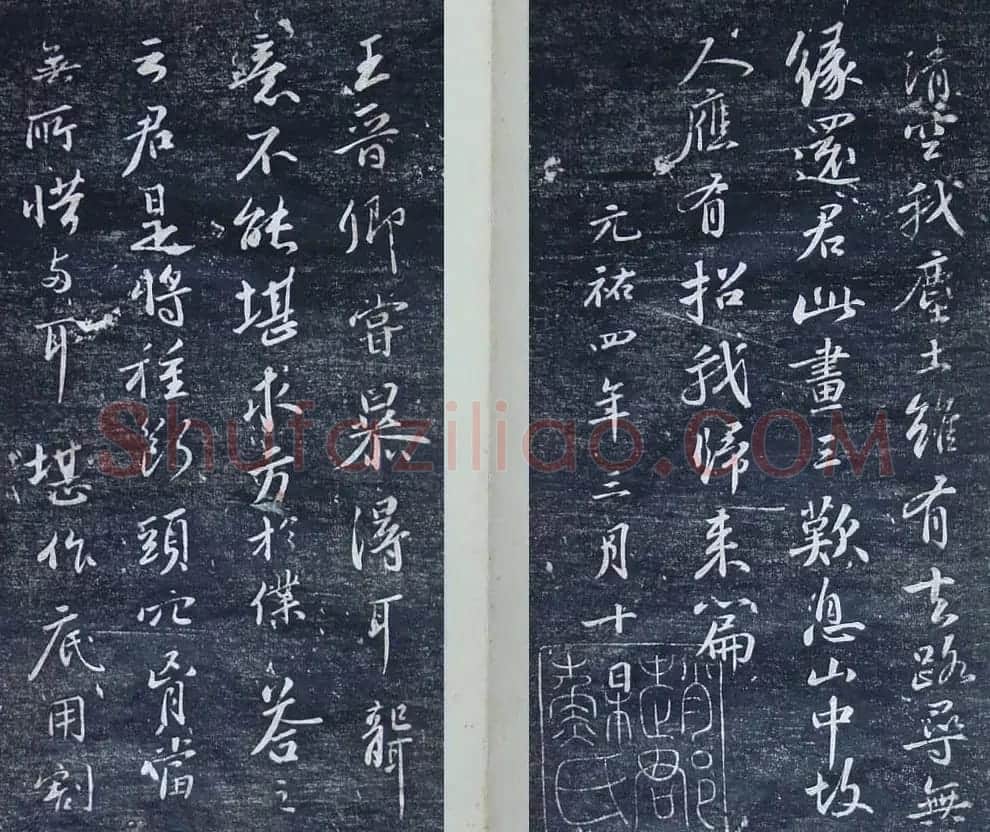 清空我塵土雖有去路尋無
緣還君此畫三歎息山中故
人應有招我歸来篇
元祐四年三月十日
趙郡蘇氏
王晉卿嘗暴得耳聾
意不能堪求方於僕荅之
云君是將種斷頭穴胷當
無所惜两耳堪作底用割
Shufaziliao.COM